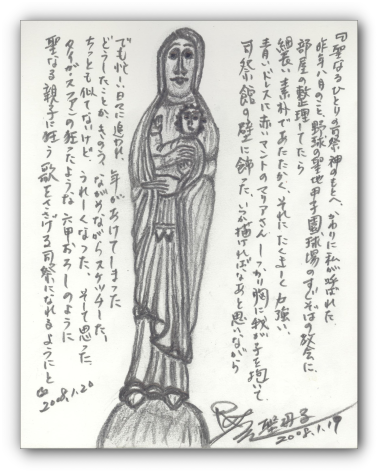 司聖なるひとりの司祭、神のもとへ、かわりに私が呼ばれた
昨年八月のこと、野球の聖地甲子園球場のすぐそばの教会に、
部屋の整理してたら
細長い素朴であたたかく、それにたくましく力強い、
青いドレスに赤いマントのマリアさん しっかり胸に我が子を抱いて、
司祭館の壁に飾った、いつか描ければなあと思いながら
聖母子
2008.1.19
でも忙しい日々に追われ 年があけてしまった
どうしたことか、きのう、ながめながらスケッチした、
ちっとも似てないけど、うれしくなった、そして思った、
タイガースファンの狂ったような 六甲おろしのように
聖なる親子に狂う 歌をささげる司祭になれるようにと
2008.1.20